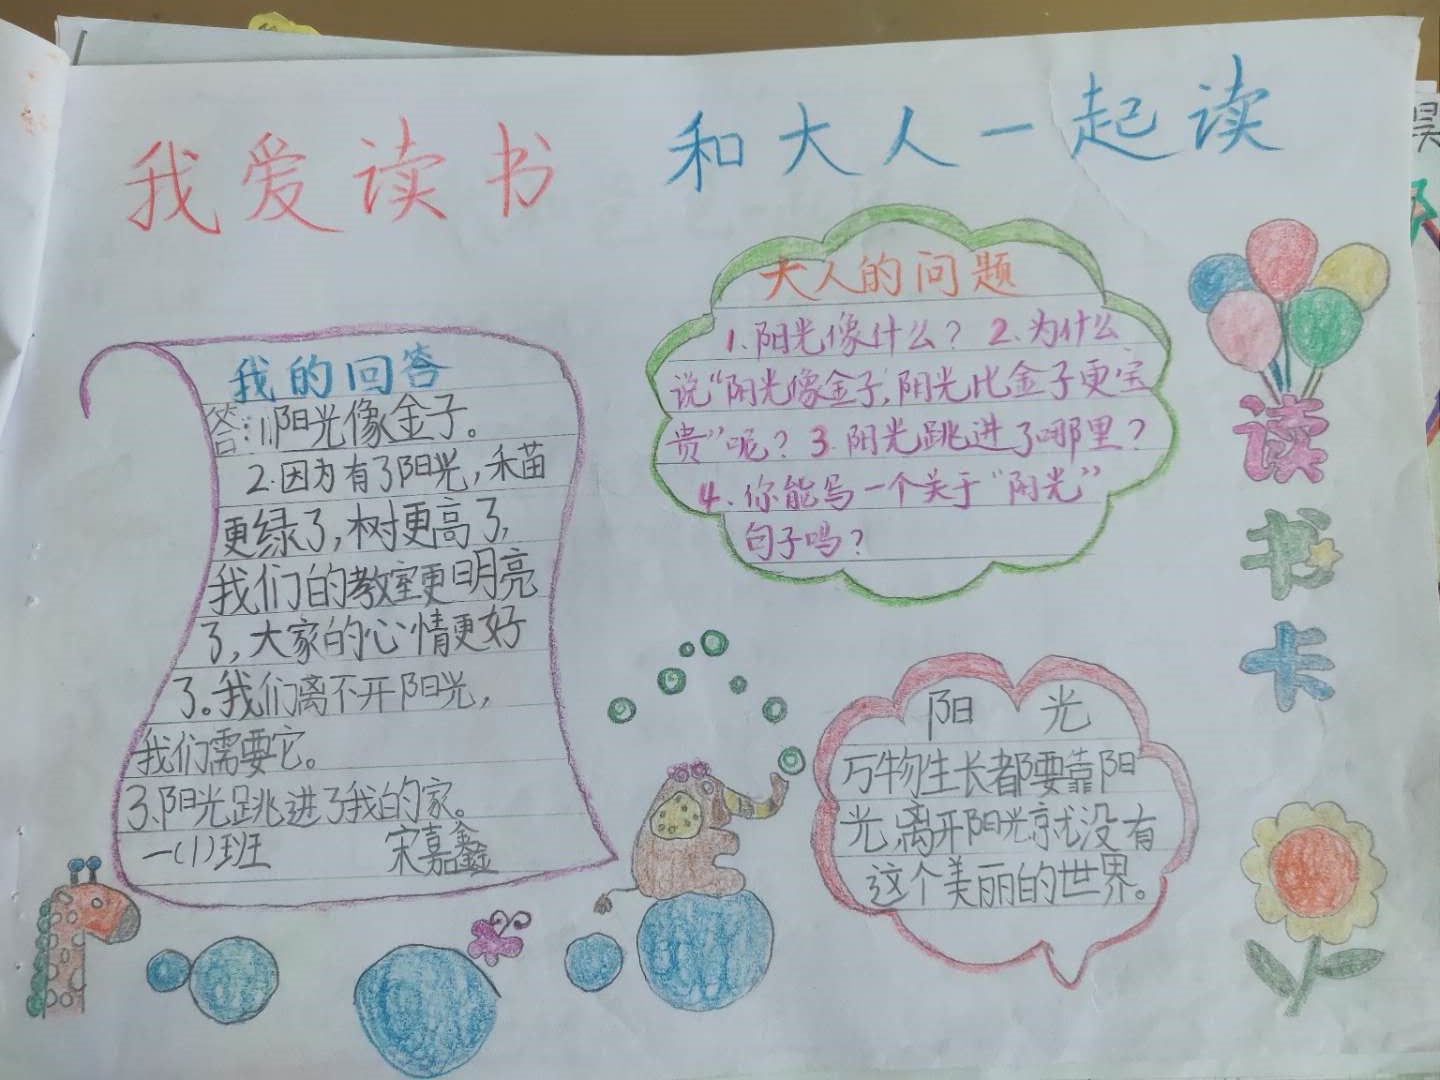 我爱读书
和大人一起读
大人的问题
1.阳光像什么？ 2.为什么
说“阳光像金子，阳光比金子更宝
贵”呢？3.阳光跳进了哪里？
4.你能写一个关于“阳光”
句子吗？
读书卡
我的回答
答：1.阳光像金子。
2.因为有了阳光，禾苗
更绿了，树更高了，
我们的教室更明亮
了，大家的心情更好
了。我们离不开阳光，
我们需要它。
3.阳光跳进了我的家。
一（1）班 宋嘉鑫
阳 光
万物生长都要靠阳
光，离开阳光就没有
这个美丽的世界。